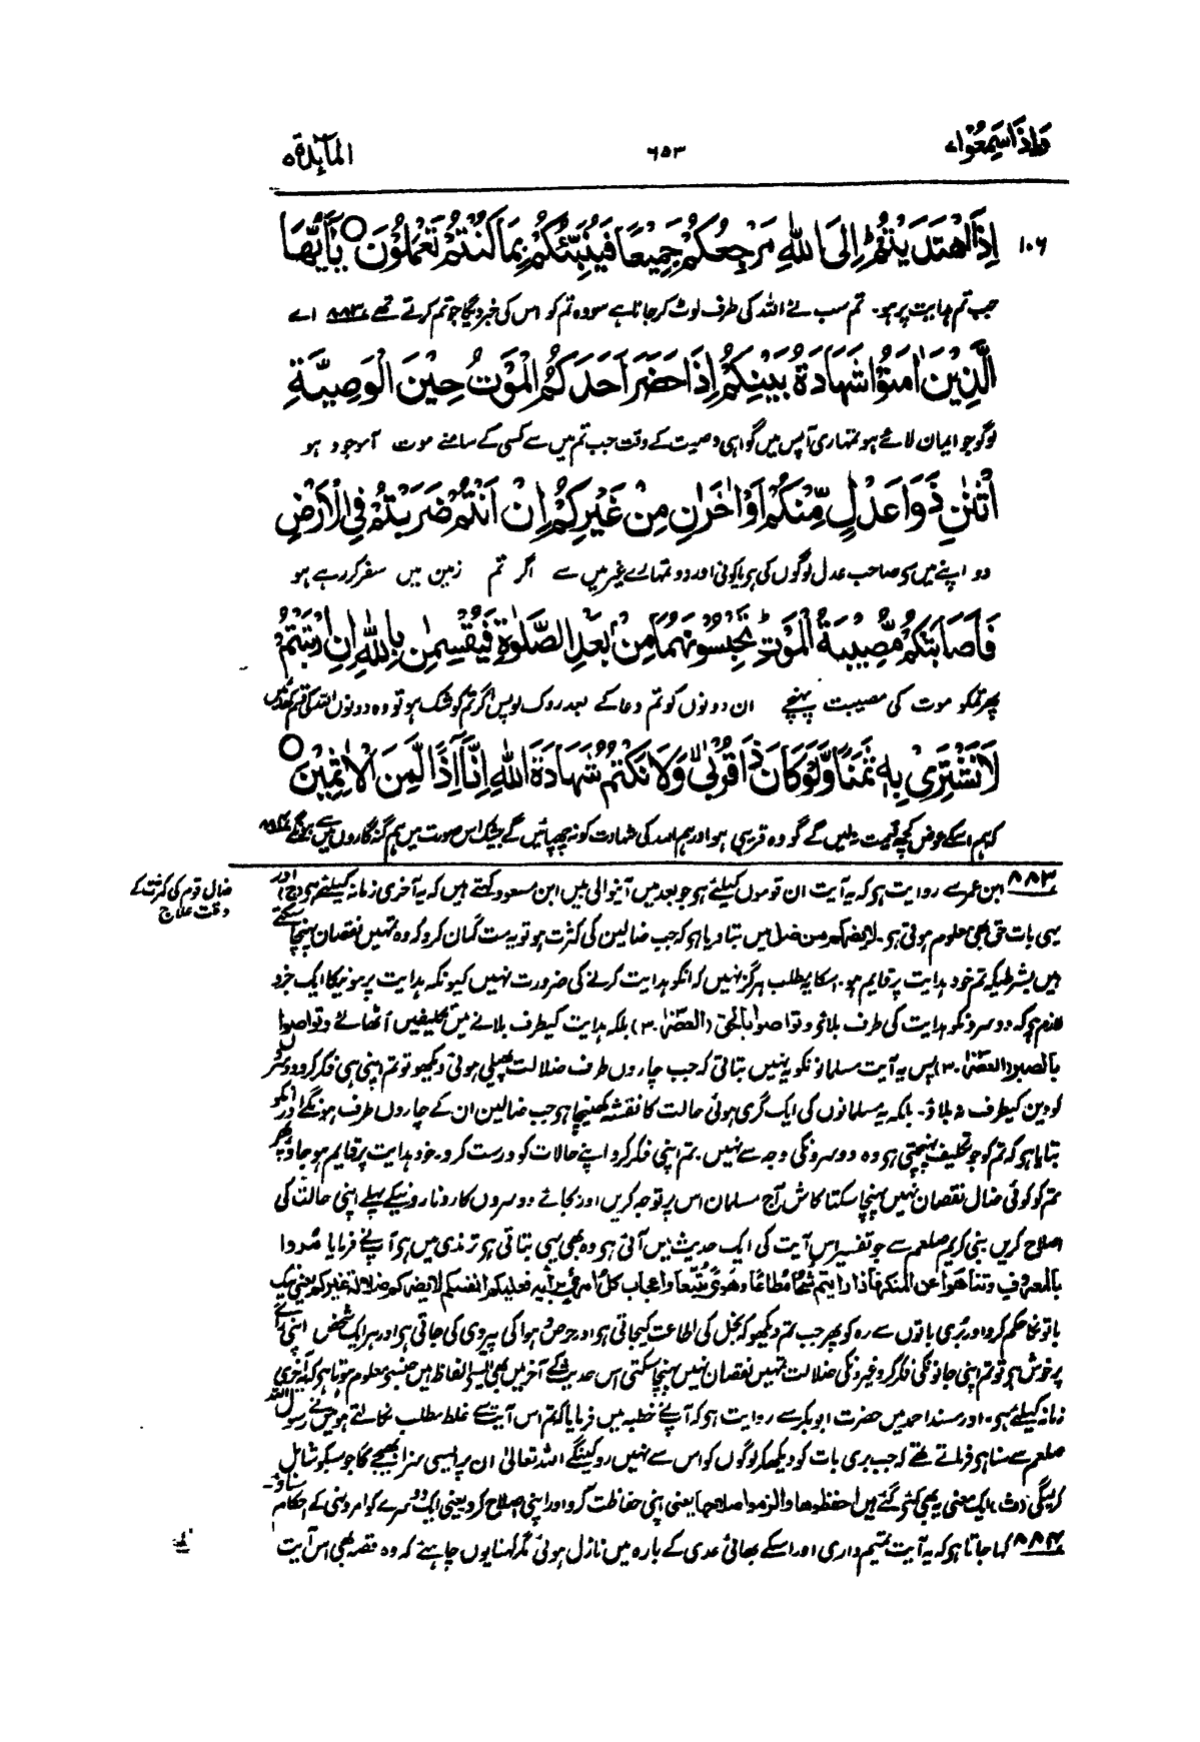 وَاِذَا سَمِعُوْا ۷
۶۵۳
المآئدة ۵
۱۰۶
اِذَا اهْتَدَيْتُمْ ؕ اِلَى اللّٰهِ مَرْجِعُكُمْ جَمِيْعًا فَيُنَبِّئُكُمْ بِمَا كُنْتُمْ تَعْمَلُوْنَ ○ يٰۤاَيُّهَا
جب تم ہدایت پر ہو۔ تم سب نے اللہ کی طرف لوٹ کر جانا ہے سو وہ تم کو اس کی خبر دیگا جو تم کرتے تھے ۸۸۳ اے
الَّذِيْنَ اٰمَنُوْا شَهَادَةُ بَيْنِكُمْ اِذَا حَضَرَ اَحَدَكُمُ الْمَوْتُ حِيْنَ الْوَصِيَّةِ
لوگو جو ایمان لائے ہو تمہاری آپس میں گواہی وصیت کے وقت جب تم میں سے کسی کے سامنے موت آموجود ہو
اثْنٰنِ ذَوَا عَدْلٍ مِّنْكُمْ اَوْ اٰخَرٰنِ مِنْ غَيْرِكُمْ اِنْ اَنْتُمْ ضَرَبْتُمْ فِي الْاَرْضِ
دو اپنے میں سے صاحب عدل لوگوں کی ہو یا کوئی اور دو تمہارے غیر میں سے اگر تم زمین میں سفر کر رہے ہو
فَاَصَابَتْكُمْ مُّصِيْبَةُ الْمَوْتِ ؕ تَحْبِسُوْنَهُمَا مِنْ بَعْدِ الصَّلٰوةِ فَيُقْسِمٰنِ بِاللّٰهِ اِنِ ارْتَبْتُمْ
پھر تمکو موت کی مصیبت پہنچے ان دونوں کو تم دعا کے بعد روک لو پس اگر تم کو شک ہو تو وہ دونوں اللہ کی قسم کھائیں
لَا نَشْتَرِيْ بِهٖ ثَمَنًا وَّلَوْ كَانَ ذَا قُرْبٰى ۙ وَلَا نَكْتُمُ شَهَادَةَ اللّٰهِ اِنَّاۤ اِذًا لَّمِنَ الْاٰثِمِيْنَ ○
کہ ہم اسکے عوض کچھ قیمت نہ لیں گے گو وہ قریبی ہو اور ہم اللہ کی شہادت کو نہ چھپائیں گے بیشک اس صورت میں ہم گنہگاروں میں سے ہونگے ۸۸۴
ضال قوم کی کثرت کے
وقت علاج
۸۸۳ ابن عمر سے روایت ہو کہ یہ آیت ان قوموں کیلئے ہو جو بعد میں آنیوالی ہیں ابن مسعود کہتے ہیں کہ یہ آخری زمانہ کیلئے ہو (ج) اور
یہی بات حق بھی معلوم ہوتی ہو۔ لایضرکم من ضل میں بتا دیا ہو کہ جب ضالین کی کثرت ہو تو یہ مت گمان کرو کہ وہ تمہیں نقصان پہنچا سکتے
ہیں بشرطیکہ تم خود ہدایت پر قایم ہو۔ اسکا یہ مطلب ہرگز نہیں کہ انکو ہدایت کرنے کی ضرورت نہیں کیونکہ ہدایت پر ہونیکا ایک جزو
لازم ہے کہ دوسرونکو ہدایت کی طرف بلائو وتواصوا بالحق (العصر۔ ۳) بلکہ ہدایت کیطرف بلانے میں تکلیفیں اٹھائے وتواصوا
بالصبر (العصر۔ ۳) پس یہ آیت مسلمانونکو یہ نہیں بتاتی کہ جب چاروں طرف ضلالت پھیلی ہوئی دیکھو تو تم اپنی ہی فکر کرو دوسروں
کو دین کیطرف نہ بلاؤ۔ بلکہ یہ مسلمانوں کی ایک گری ہوئی حالت کا نقشہ کھینچا ہو جب ضالین ان کے چاروں طرف ہونگے اور انکو
بتایا ہو کہ تم کو جو تکلیف پہنچتی ہو وہ دوسرونکی وجہ سے نہیں۔ تم اپنی فکر کرو اپنے حالات کو درست کرو۔ خود ہدایت پر قایم ہو جاؤ پھر
تم کو کوئی ضال نقصان نہیں پہنچا سکتا کاش آج مسلمان اس پر توجہ کریں اور بجائے دوسروں کا رونا رونیکے پہلے اپنی حالت کی
اصلاح کریں نبی کریم صلعم سے جو تفسیر اس آیت کی ایک حدیث میں آتی ہو وہ بھی یہی بتاتی ہو ترمذی میں ہو آپ نے فرمایا مروا
بالمعروف وتناھوا عن المنکر فاذا رایتم شحا مطاعا وھوی متبعا واعجاب کل امرئ برأیہ فعلیکم انفسکم لایضرکم ضلالۃ غیرکم یعنی نیک
باتونکا حکم کرو اور بُری باتوں سے رہ کو پھر جب تم دیکھو کہ بخل کی اطاعت کیجاتی ہو اور حرص و ہوا کی پیروی کی جاتی ہو اور ہر ایک شخص اپنی رائے
پر خوش ہو تو تم اپنی جانونکی فکر کرو غیرونکی ضلالت تمہیں نقصان نہیں پہنچا سکتی اس حدیث کے آخر میں بھی ایسے الفاظ ہیں جنسے معلوم ہوتا ہو کہ آخری
زمانہ کیلئے ہو۔ اور مسند احمد میں حضرت ابو بکر سے روایت ہو کہ آپ نے خطبہ میں فرمایا کہ تم اس آیت سے غلط مطلب نکالتے ہو میں نے رسول اللہ
صلعم سے سنا ہو فرماتے تھے کہ جب بری بات کو دیکھکر لوگوں کو اس سے نہیں روکینگے اللہ تعالیٰ ان پر ایسی سزا بھیجے گا جو سبکو شامل
کریگی (ث) ایک معنی یہ بھی کئے گئے ہیں احفظوھا والزموا صلاحھا یعنی اپنی حفاظت کرو اور اپنی اصلاح کرو یعنی ایک دوسرے کو امر و نہی کے احکام سناؤ۔
۸۸۴ کہا جاتا ہو کہ یہ آیت تمیم داری اور اسکے بھائی عدی کے بارہ میں نازل ہوئی مگر کہنا یوں چاہئے کہ وہ قصہ بھی اس آیت